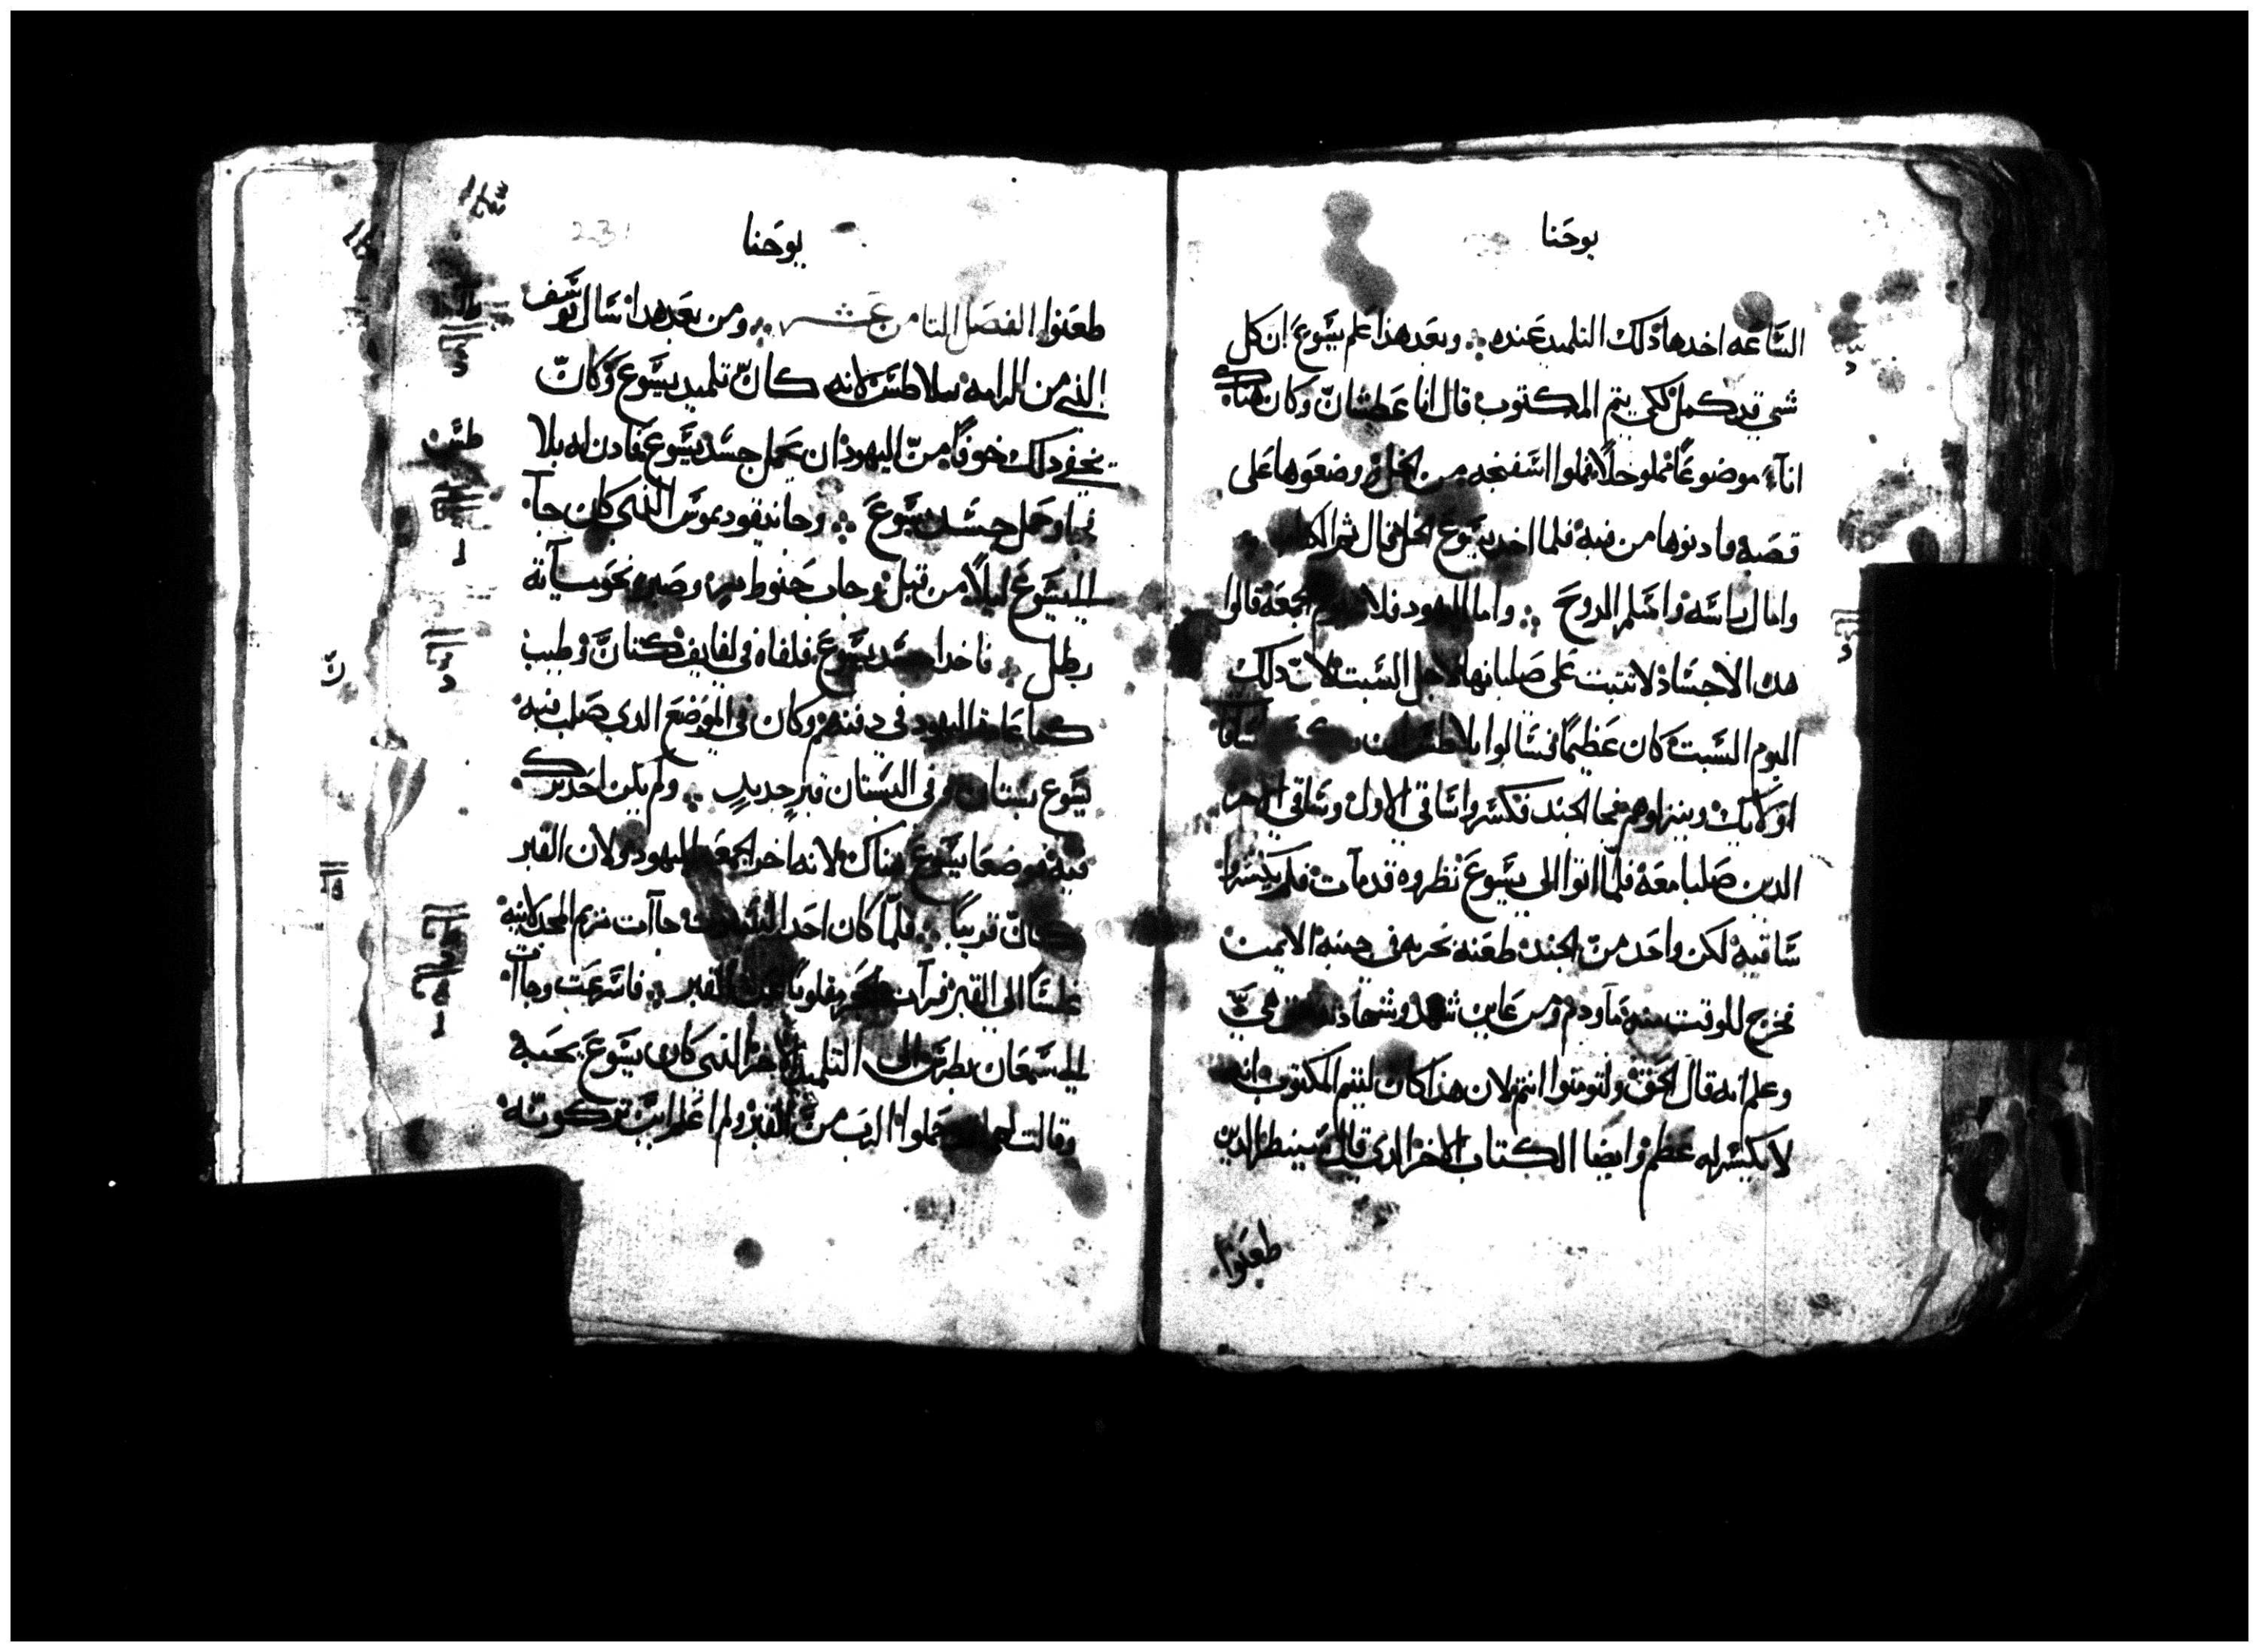 يوحنا
الساعه اخدها ذلك التلميد عنده ؞ وبعد هذا علم يسوع ان كل
شي قد كمل لكي يتم المكتوب قال انا عطشان وكان هناك
اناء موضوعًا مملو خلًا فملوا اسفنجه من الخل وضعوها على
قصبه وادنوها من فيه فلما اخد يسوع الخل قال تم الكتاب
وامال راسه واسلم الروح ؞ واما اليهود فلان يوم الجمعه قالوا
هده الاجساد لا تتبت على صلبانها لاجل السبت لان دلك
اليوم السبت كان عظيمًا فسالوا بيلاطس ان ساقا
اوليك وينزلوهم فجا الجند فكسروا ساقي الاول وساقي الاخر
الدين صلبا معه فلما اتوا الى يسوع نظروه قد مات فلم يكسروا
ساقيه لكن واحد من الجند طعنه بحربه في جنبه الايمن
فخرج للوقت منه ماء ودم ومن عاين شهد وشهادته هي حق
وعلم انه قال الحق ولتومنوا انتم لان هذا كان ليتم المكتوب انه
لا يكسر له عظم وايضا الكتاب الاخر الدي قال سينظر الدين
طعنوا
يوحنا
231
طعنوا الفصل التامن عشر ؞ ومن بعد هدا سال يوسف
الذي من الرامه بيلاطس لانه كان تلميد يسوع وكان
يخفي دلك خوفًا من اليهود ان يحمل جسد يسوع فادن له بيلا
طس
فجا وحمل جسد يسوع ؞ وجا نيقوديموس الذي كان جآ
الي يسوع ليلًا من قبل وجاب حنوط مر وصبر نحو مايه
رطل ؞ فاخدا جسد يسوع فلفاه في لفايف كتان وطيب
كما عادة اليهود في دفنهم وكان في الموضع الدي صلب فيه
يسوع بستان وفي البستان قبر جديد ؞ ولم يكن احد ترك
فيه فوضعا يسوع هناك لانه اخر الجمعه لليهود ولان القبر
كان قريبًا ؞ فلما كان احد السبوت جاات مريم المجدلانيه
غلسًا الى القبر فرات الحجر مقلوبًا عن القبر ؞ فاسرعت وجاات
الي سمعان بطرس والى التلميد الاخر الذي كان يسوع يحبه
وقالت لهما قد حملوا الرب من القبر ولم اعلم اين تركوته